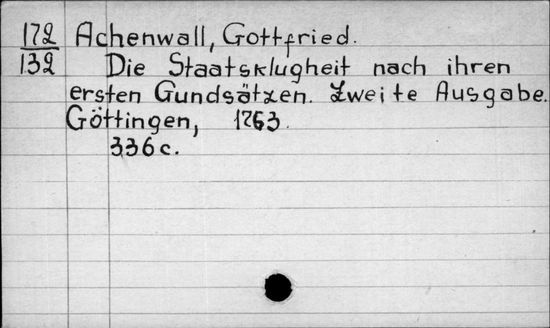 172 Achenwall, Gottfried.
132 Die Staatsklugheit nach ihren
ersten Gundsätzen. Zweite Ausgabe.
Göttingen, 1763.
336 c.